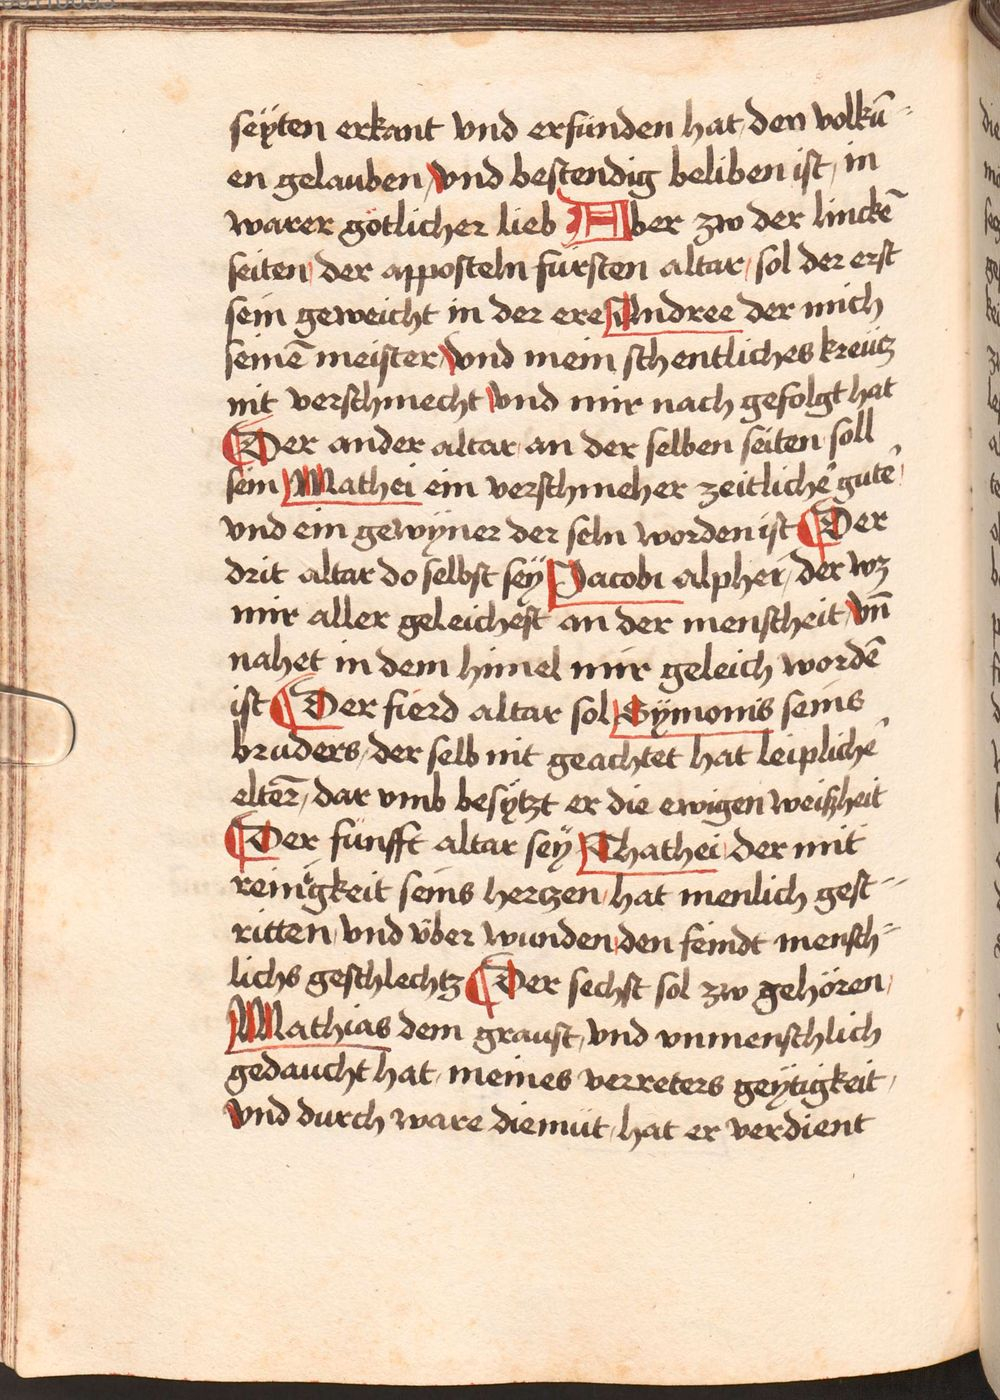 seÿten erkant vnd erfunden hat den volkū=
en gelauben, vnd bestendig beliben ist, in
warer götlicher lieb Aber zw der linckē
seiten, der apposteln fürsten altar, sol der erst
sein geweicht in der ere Andree der mich
seinē meister, vnd mein schentliches kreütz
nit verschmecht vnd mir nach gefolgt hat
¶ Der ander altar, an der selben seiten soll
sein Mathei ein verschmeher zeitlichē gutē
vnd ein gewÿner der seln worden ist ¶ Der
drit altar do selbst seÿ Jacobi alphei, der wz
mir aller geleichest an der menscheit, vn̄
nahet in dem himel mir geleich wordē
ist ¶ Der fierd altar sol Sÿmonis seins
bruders, der selb nit geachtet hat leiplichē
elter̄, dar vmb besÿtzt er die ewigen weißheit
¶ Der fünfft altar seÿ Thathei der mit
reinigkeit seins hertzen, hat menlich gest=
ritten, vnd über wunden, den feindt mensch=
lichs geschlechtz ¶ Der sechst sol zw gehören,
Mathias dem graust, vnd vnmenschlich
gedaucht hat, meines verreters geÿtigkeit,
vnd durch ware diemüt, hat er verdient